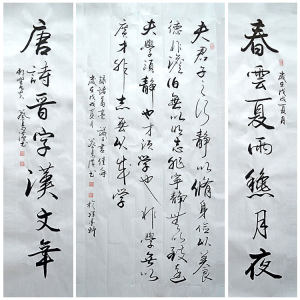 春雲夏雨穐月夜
歲在戊戌夏月
夫君子之行靜以脩身儉以養
德非澹泊無以明志非寧靜無以致遠
夫學須靜也才須學也非學無以
廣才非志無以成學
歲在戊戌夏月
唐詩晉字漢文章